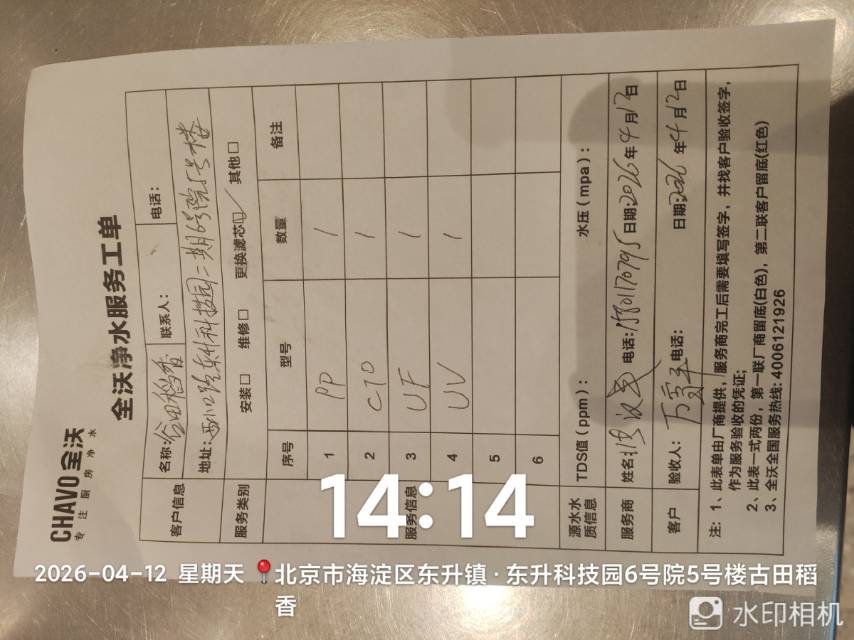 CHAVO 全沃
专注厨房净水
全沃净水服务工单
客户信息 名称: 谷田稻香 联系人: 电话:
地址: 西小口路东升科技园二期6号院5号楼
服务类别 安装□ 维修□ 更换滤芯☑ 其他□
服务信息 序号 型号 数量 备注
1 PP 1
2 CTO 1
3 UF 1
4 UV 1
5
6
源水水质信息 TDS值(ppm): 水压(mpa):
服务商 姓名: 电话: 15801170795 日期: 2026年4月12日
客户 验收人: 电话: 日期: 2026年4月12日
注: 1、此表单由厂商提供,服务商完工后需要填写签字,并找客户验收签字,
作为服务验收的凭证;
2、此表一式两份, 第一联厂商留底(白色), 第二联客户留底(红色)
3、全沃全国服务热线: 4006121926
14:14
2026-04-12 星期天 北京市海淀区东升镇·东升科技园6号院5号楼古田稻
香
水印相机